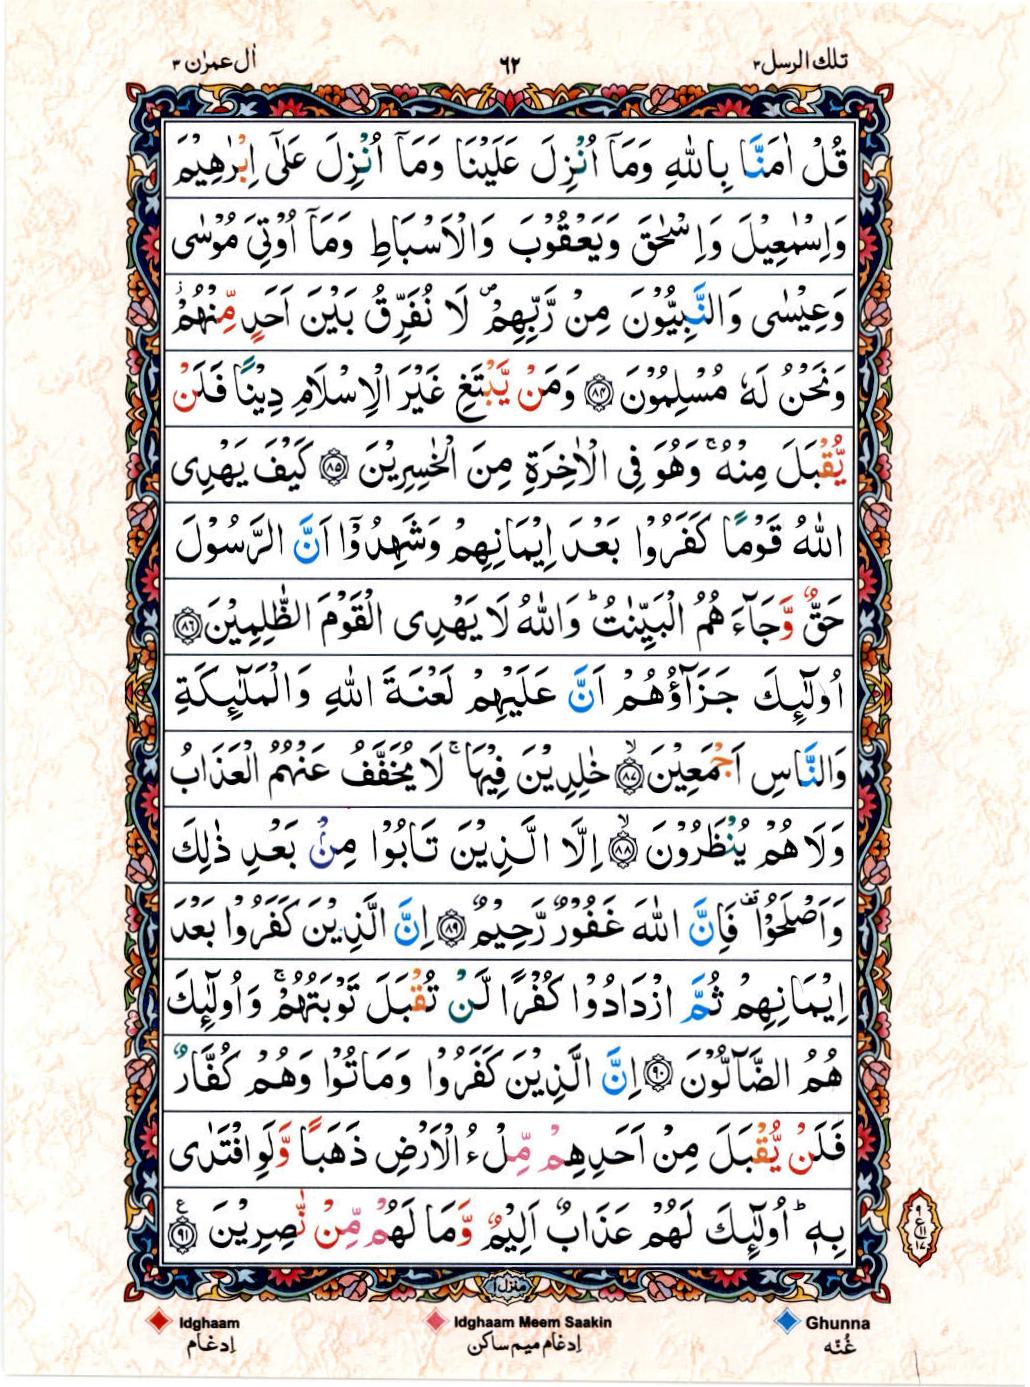 تلك الرسل ٣
٦٢
اٰل عمرٰن ٣
قُلْ اٰمَنَّا بِاللّٰهِ وَمَآ اُنْزِلَ عَلَيْنَا وَمَآ اُنْزِلَ عَلٰٓى اِبْرٰهِيْمَ
وَاِسْمٰعِيْلَ وَاِسْحٰقَ وَيَعْقُوْبَ وَالْاَسْبَاطِ وَمَآ اُوْتِىَ مُوْسٰى
وَعِيْسٰى وَالنَّبِيُّوْنَ مِنْ رَّبِّهِمْ ۪ لَا نُفَرِّقُ بَيْنَ اَحَدٍ مِّنْهُمْ ۫
وَنَحْنُ لَهٗ مُسْلِمُوْنَ ﴿٨٤﴾ وَمَنْ يَّبْتَغِ غَيْرَ الْاِسْلَامِ دِيْنًا فَلَنْ
يُّقْبَلَ مِنْهُ ۚ وَهُوَ فِى الْاٰخِرَةِ مِنَ الْخٰسِرِيْنَ ﴿٨٥﴾ كَيْفَ يَهْدِى
اللّٰهُ قَوْمًا كَفَرُوْا بَعْدَ اِيْمَانِهِمْ وَشَهِدُوْٓا اَنَّ الرَّسُوْلَ
حَقٌّ وَّجَآءَهُمُ الْبَيِّنٰتُ ؕ وَاللّٰهُ لَا يَهْدِى الْقَوْمَ الظّٰلِمِيْنَ ﴿٨٦﴾
اُولٰٓئِكَ جَزَآؤُهُمْ اَنَّ عَلَيْهِمْ لَعْنَةَ اللّٰهِ وَالْمَلٰٓئِكَةِ
وَالنَّاسِ اَجْمَعِيْنَ ۙ ﴿٨٧﴾ خٰلِدِيْنَ فِيْهَا ۚ لَا يُخَفَّفُ عَنْهُمُ الْعَذَابُ
وَلَا هُمْ يُنْظَرُوْنَ ۙ ﴿٨٨﴾ اِلَّا الَّذِيْنَ تَابُوْا مِنْۢ بَعْدِ ذٰلِكَ
وَاَصْلَحُوْا ۟ فَاِنَّ اللّٰهَ غَفُوْرٌ رَّحِيْمٌ ﴿٨٩﴾ اِنَّ الَّذِيْنَ كَفَرُوْا بَعْدَ
اِيْمَانِهِمْ ثُمَّ ازْدَادُوْا كُفْرًا لَّنْ تُقْبَلَ تَوْبَتُهُمْ ۚ وَاُولٰٓئِكَ
هُمُ الضَّآلُّوْنَ ﴿٩٠﴾ اِنَّ الَّذِيْنَ كَفَرُوْا وَمَاتُوْا وَهُمْ كُفَّارٌ
فَلَنْ يُّقْبَلَ مِنْ اَحَدِهِمْ مِّلْءُ الْاَرْضِ ذَهَبًا وَّلَوِ افْتَدٰى
بِهٖ ؕ اُولٰٓئِكَ لَهُمْ عَذَابٌ اَلِيْمٌ وَّمَا لَهُمْ مِّنْ نّٰصِرِيْنَ ﴿٩١﴾ ع
٩
ع ١١
١٧
منزل ١
Idghaam
Idghaam Meem Saakin
Ghunna
اِدغام
اِدغام ميم ساكن
غُنّه